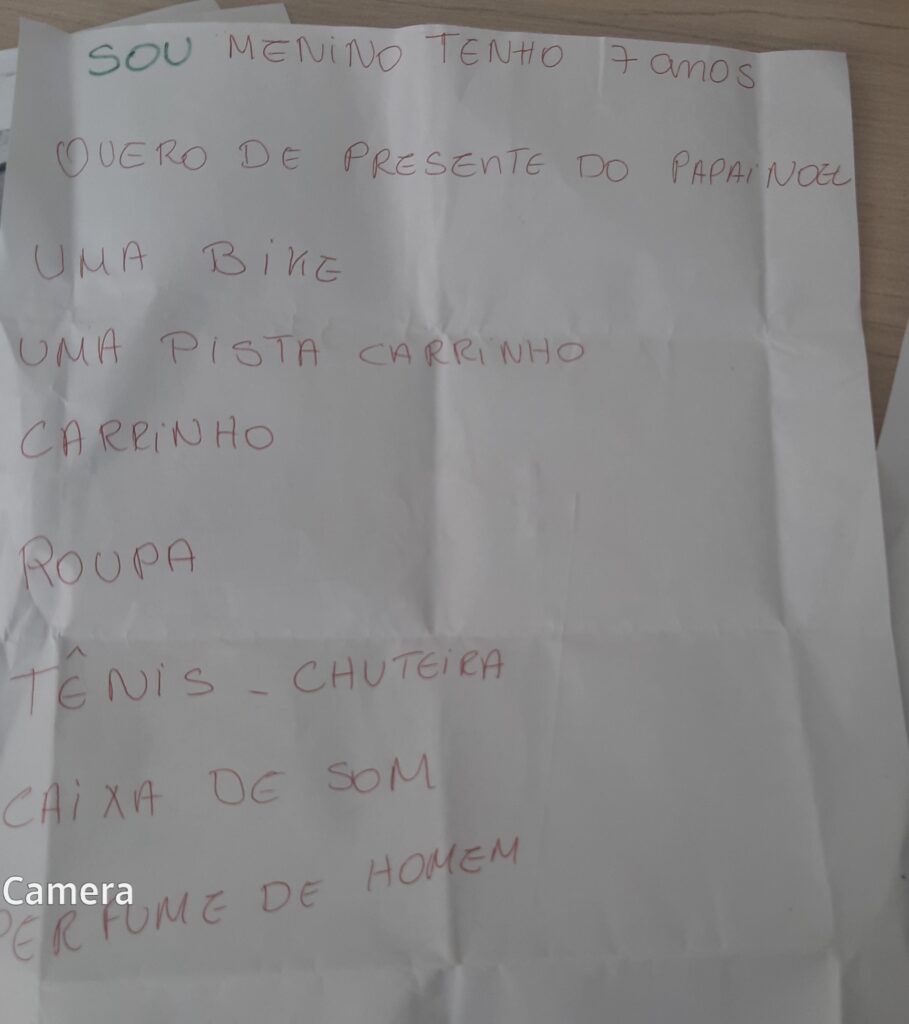 SOU MENINO TENHO 7 anos
QUERO DE PRESENTE DO PAPAI NOEL
UMA BIKE
UMA PISTA CARRINHO
CARRINHO
ROUPA
TÊNIS - CHUTEIRA
CAIXA DE SOM
Camera
PERFUME DE HOMEM